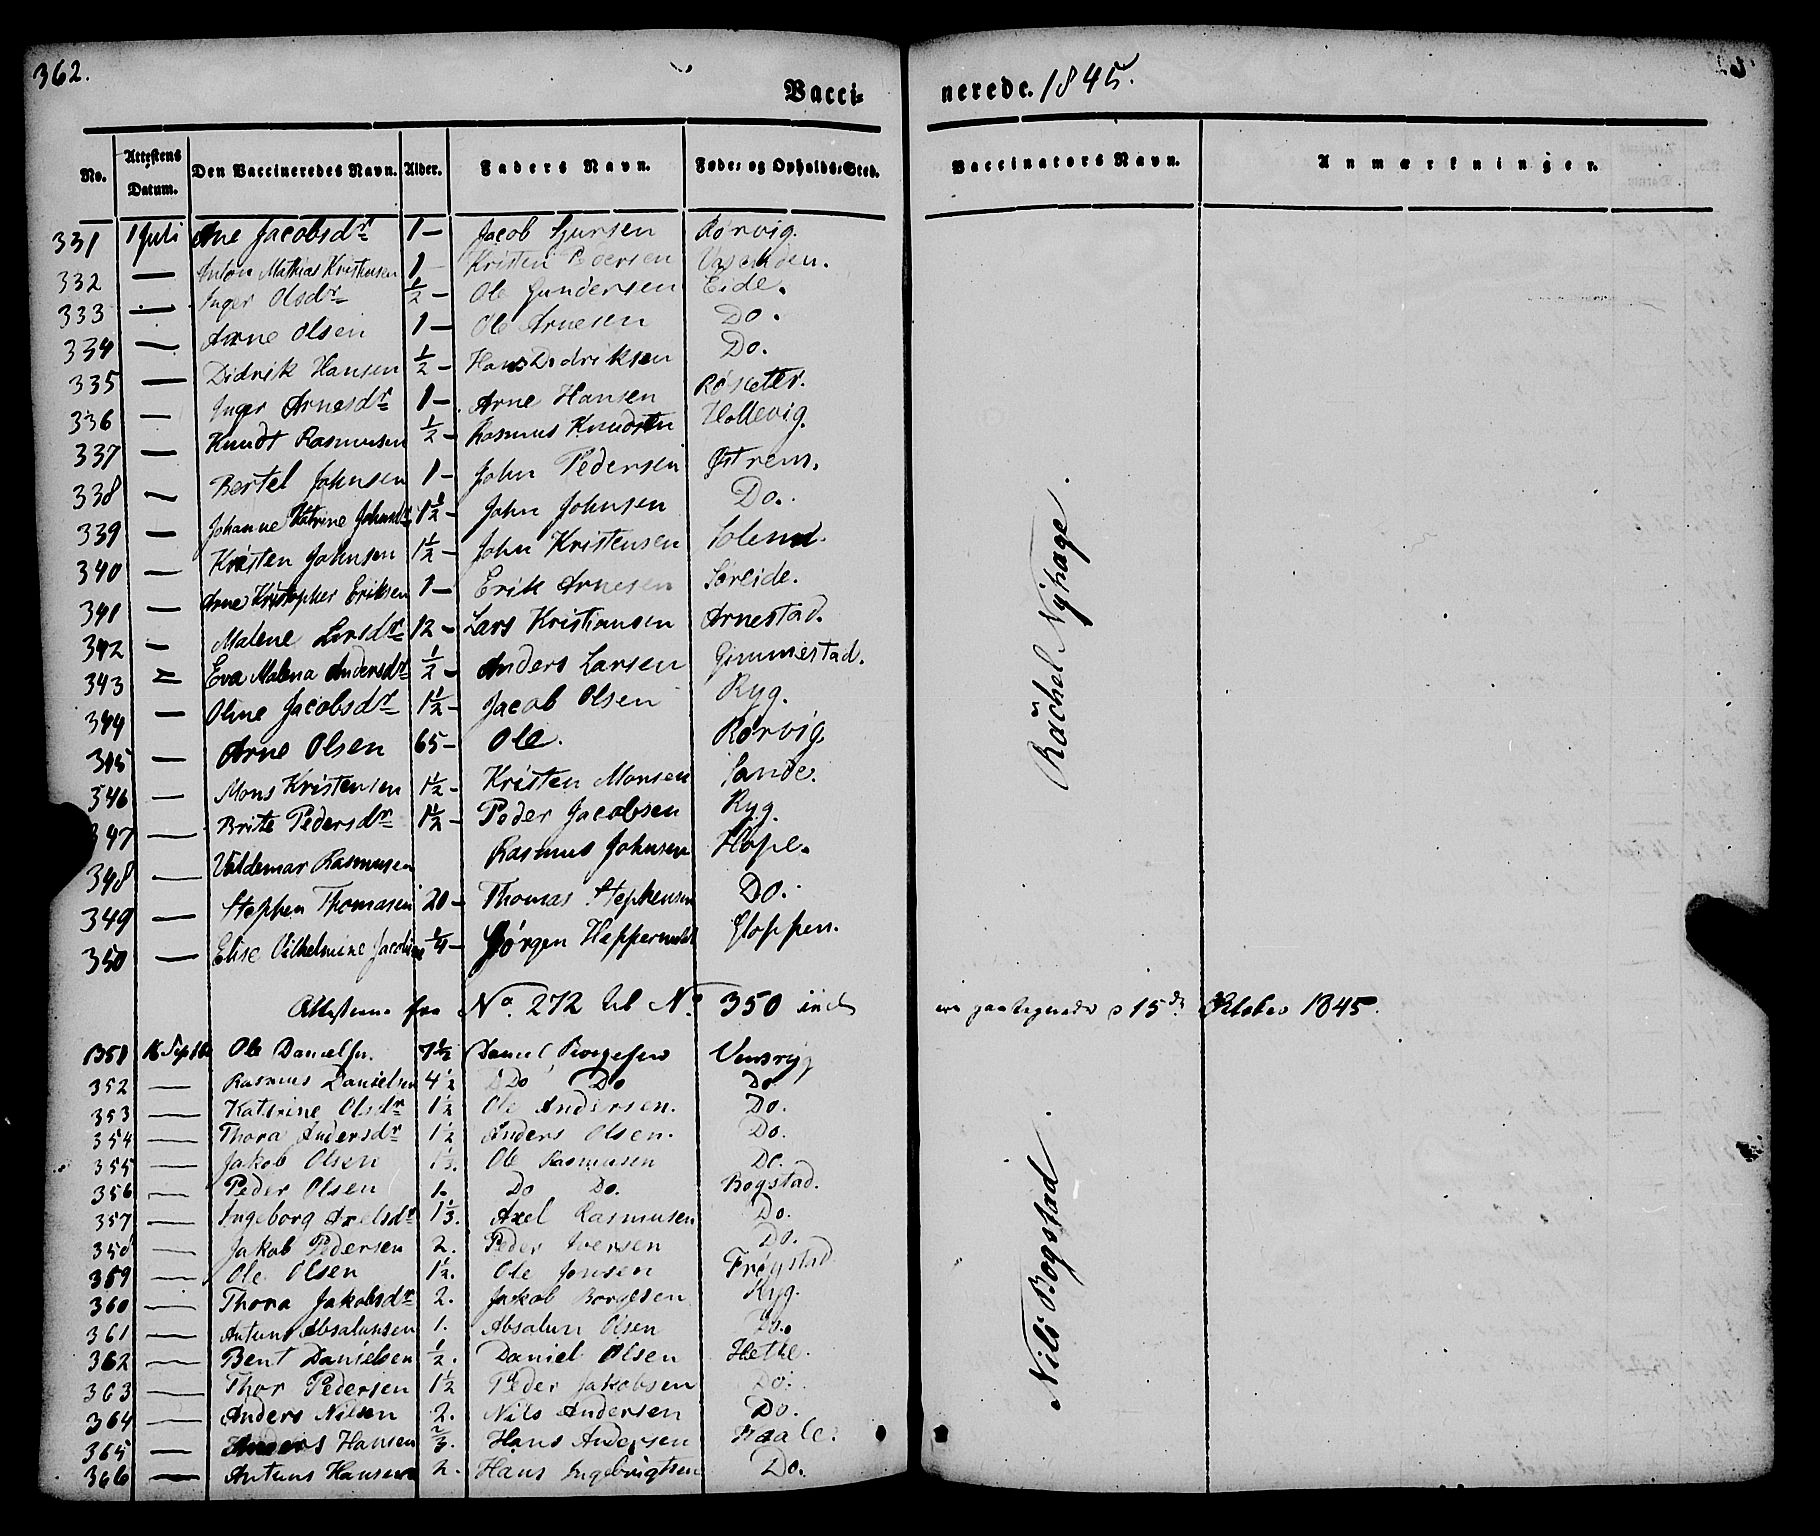 362.
Vaccinerede. 1845.
No. Attestens Datum. Den Vaccineredes Navn. Alder. Faders Navn. Føde- og Opholds-Sted. Vaccinators Navn. Anmærkninger.
331 1 Juli Ane Jacobsdr 1 – Jacob Sjursen Rørvig.
332 — Anton Mathias Kristensen 1 – Kristen Pedersen
333 — Inger Olsdr ½ – Ole Gundersen Eide.
334 — Arne Olsen 1 – Ole Arnesen Do.
335 — Didrik Hansen ½ – Hans Didriksen Do.
336 — Inger Arnesdr 1 – Arne Hansen Røsæter.
337 — Knudt Rasmusen ½ – Rasmus Knudsen Hollevig.
338 — Bertel Johnsen 1 – John Pedersen Østrem.
339 — Johanne Katrine Johnsdr 1½ – John Johnsen Do.
340 — Kristen Johnsen 1½ – John Kristensen Solem.
341 — Arne Kristopher Eriksen 1 – Erik Arnesen Søreide.
342 — Malene Larsdr 12 – Lars Kristiansen Arnestad.
343 — Eva Malena Andersdr ½ – Anders Larsen Gimmestad.
344 — Oline Jacobsdr 1½ – Jacob Olsen Ryg.
345 — Arne Olsen 65 – Ole. Rørvig
346 — Mons Kristensen 1½ – Kristen Monsen Sande.
347 — Brite Pedersdr 1½ – Peder Jacobsen Ryg.
348 — Valdemar Rasmusen Rasmus Johnsen Hope.
349 — Stephen Thomasen 20 – Thomas Stephensen Do.
350 — Elise Vilhelmine Jacobine ¼ – Jørgen Gloppen.
Rachel Nyhage.
Attesterne fra No. 272 til No. 350 incl ere paategnede d 15de Oktober 1845.
351 16 Septbr Ole Danielsen. 7½ Daniel
352 — Rasmus Danielsen 4½ Do Do Do
353 — Katerine Olsdr 1½ Ole Andersen. Do.
354 — Thora Andersdr 1½ Anders Olsen. Do.
355 — Jakob Olsen 1⅓. Ole Rasmusen Do.
356 — Peder Olsen 1. Do Do. Bogstad.
357 — Ingeborg Axelsdr 1⅓. Axel Rasmusen Do.
358 — Jakob Pedersen 2. Peder Iversen Do.
359 — Ole Olsen 1½. Ole Jonsen Frøystad
360 — Thora Jakobsdr 2. Jakob Borgesen Ryg.
361 — Antuns Absalunsen 1. Absalun Olsen Do.
362 — Bent Danielsen ½. Daniel Olsen Hetle.
363 — Thor Pedersen 1½ Peder Jakobsen Do.
364 — Anders Nilsen 2. Nils Andersen Do.
365 — Anders Hansen ⅔. Hans Andersen Haale.
366 — Antuns Hansen 2. Hans Ingebrigtsen Do.
Nils Bogstad.